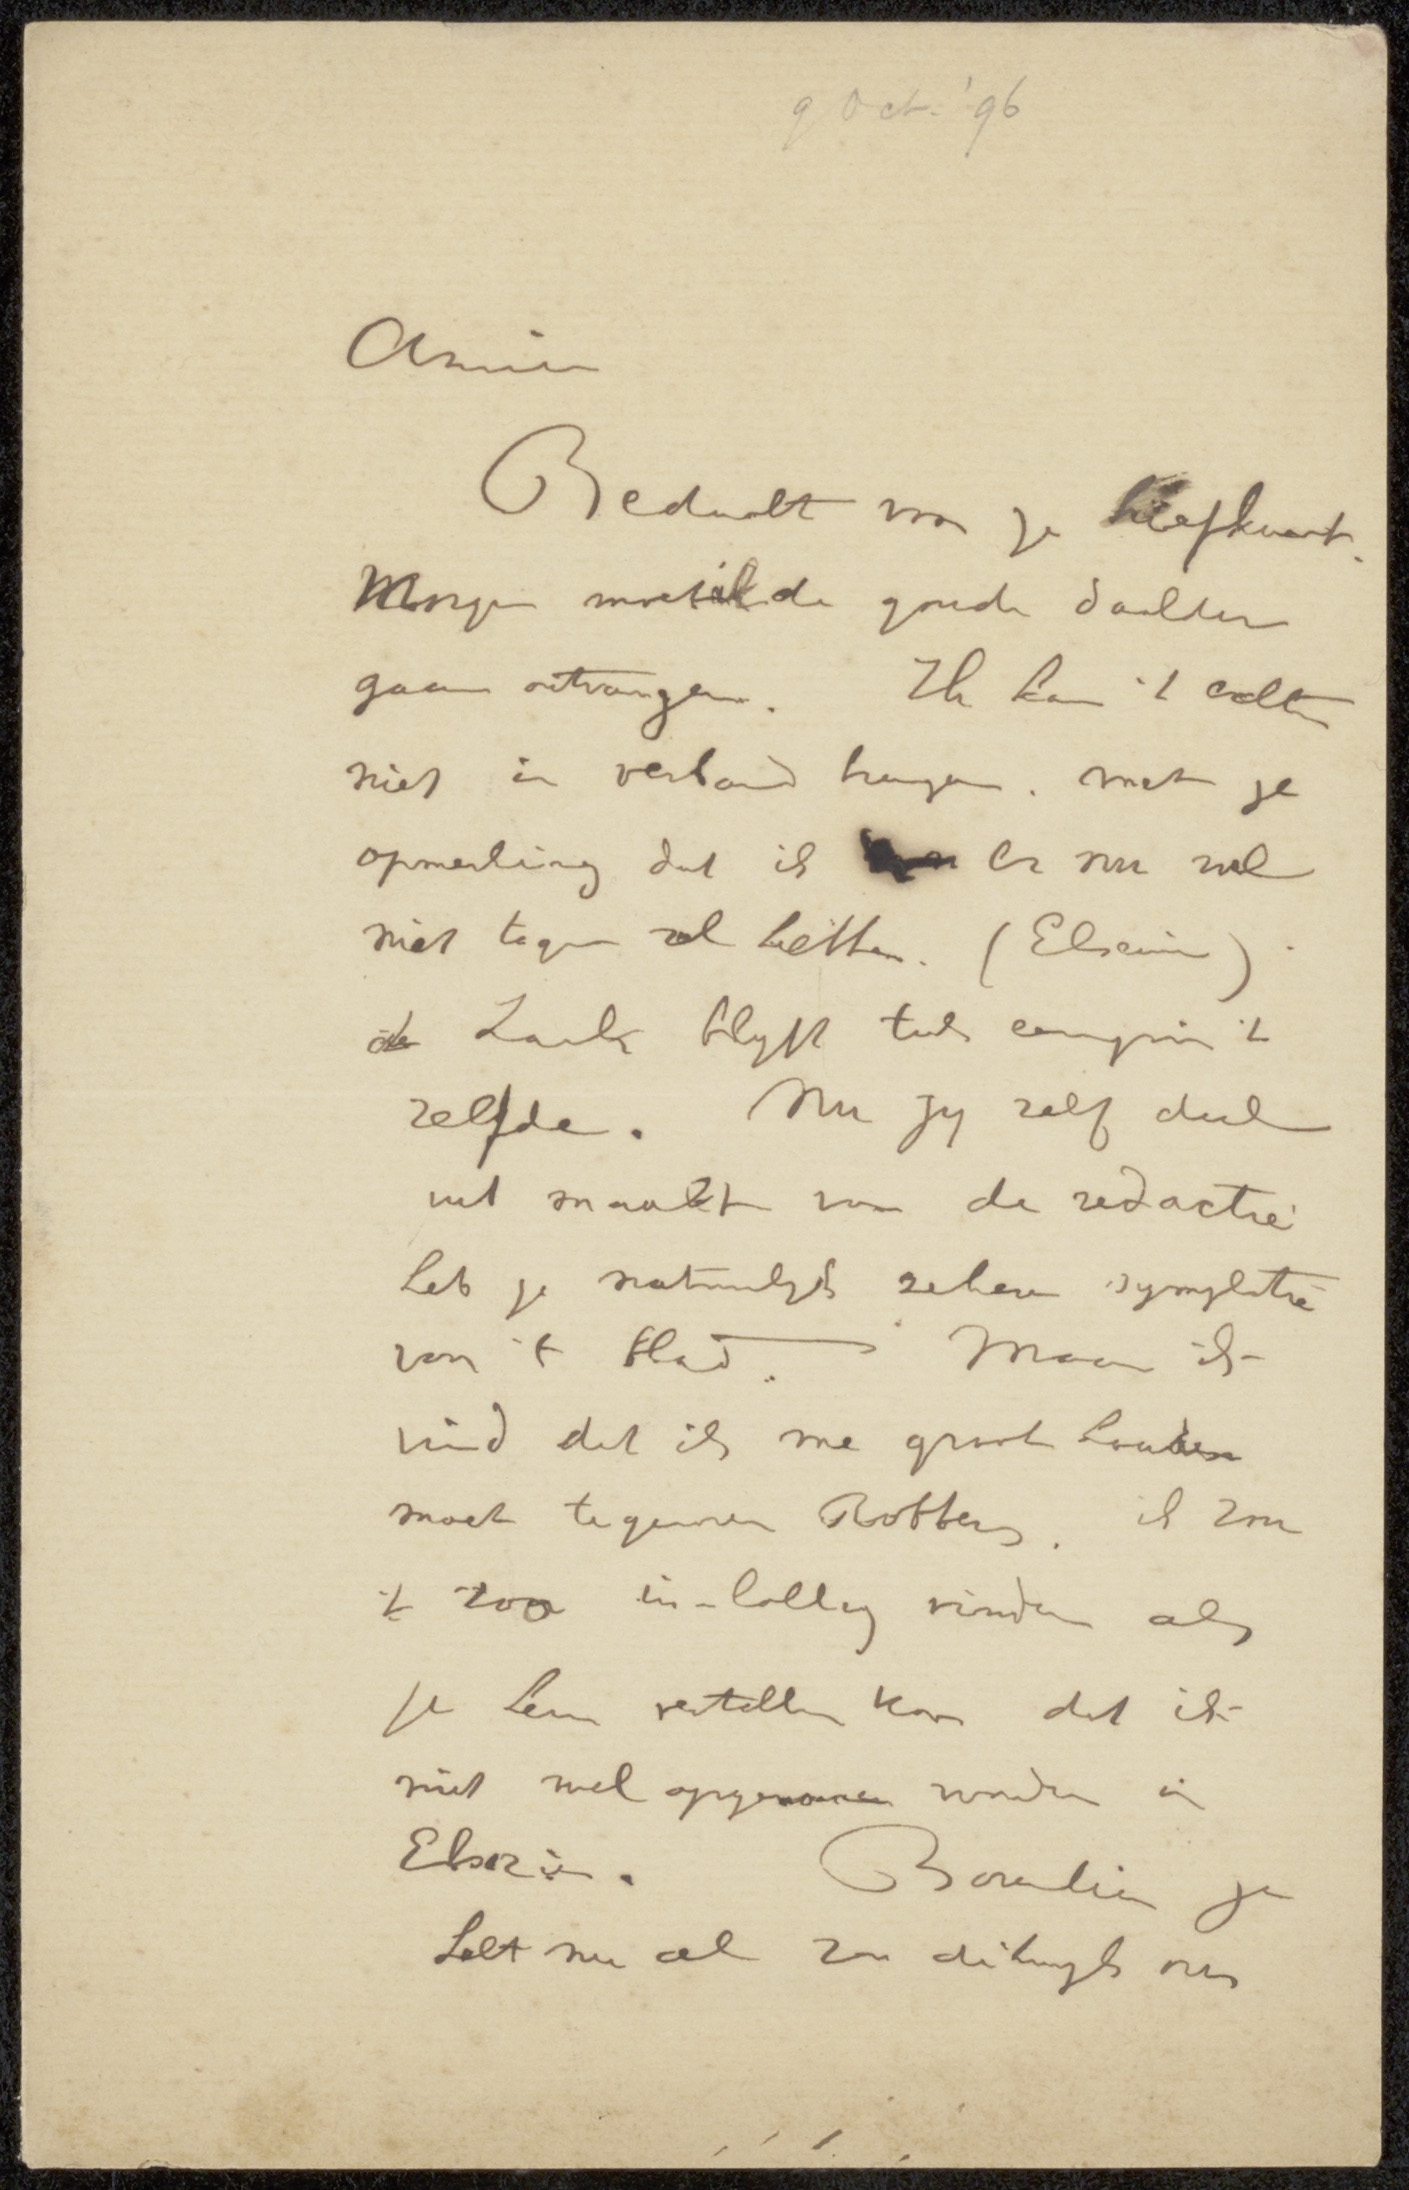 9 Oct. '96
Amice
Bedankt voor je briefkaart.
Morgen moet ik de goude daalders
gaan ontvangen. Ik kan 't echter
niet in verband brengen. met je
opmerking dat ik er nu wel
niet tegen zal hebben. (Elsevier)
de zaak blyft toch eenzyn 't
zelfde. Nu jy zelf deel
uit maakt van de redactie
heb je natuurlyk zekere sympathie
voor 't blad. Maar ik
vind dat ik me groot houden
moet tegenover Robbers. ik zou
't zoo in-lollig vinden als
je hem vertellen kon dat ik
niet wel opgenomen worden in
Elsevier. Bovendien je
hebt nu al zoo dikwyls ons